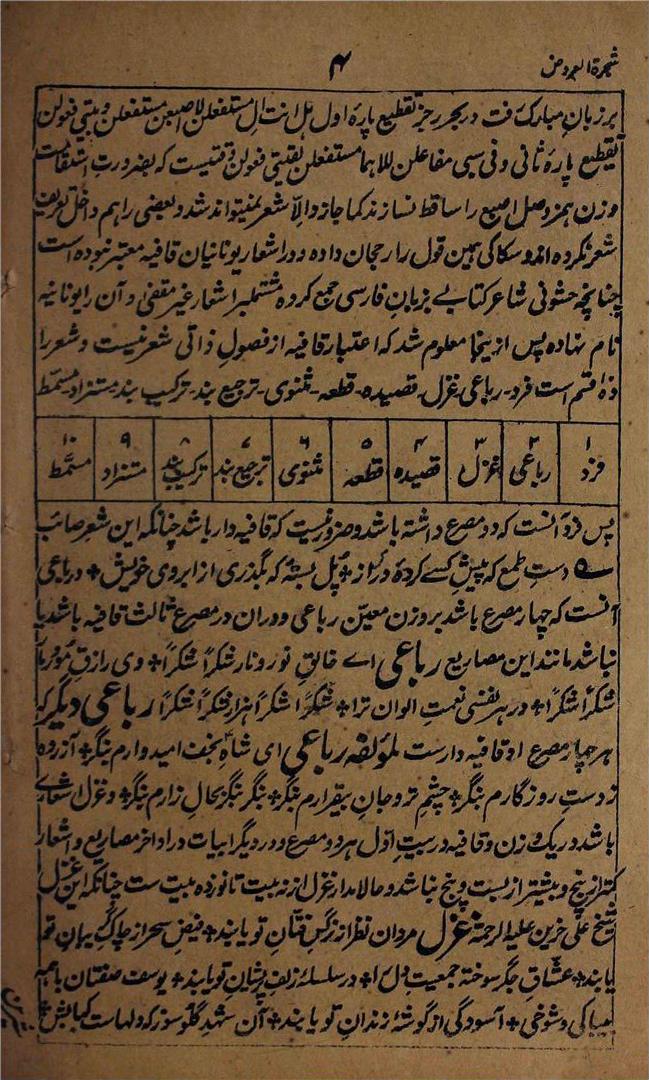 شجرة العروض
۴
بر زبان مبارک رفت در بحر رجز تقطیع پارهٔ اول هل انت ال مستفعلن لا اصبعن مستفعلن دمیتی فعولن
تقطیع پارهٔ ثانی وفی سبی مفاعلن للاهما مستفعلن لقیتی فعولن وقتیست که بضرورت استقامت
وزن همز وصل اصبع را ساقط نسازند کما جاز والّا شعر نمیتواند شد و بعضی را هم داخل تعریف
شعر نکرده اند و سکاکی همین قول را رجحان داده و در اشعار یونانیان قافیه معتبر نبوده است
چنانچه حشونی شاعر کتابے بزبان فارسی جمع کرده مشتملبر اشعار غیر مقفی و آن را یونانیه
نام نهاده پس ازینجا معلوم شد که اعتبار قافیه از فصول ذاتی شعر نیست و شعر را
ده قسم است فرد۔ رباعی۔ غزل۔ قصیده۔ قطعه۔ مثنوی۔ ترجیع بند۔ ترکیب بند۔ مستزاد۔ مسمّط
۱ ۲ ۳ ۴ ۵ ۶ ۷ ۸ ۹ ۱۰
فرد رباعی غزل قصیده قطعه مثنوی ترجیع بند ترکیب بند مستزاد مسمّط
پس فرد آنست که دو مصرع داشته باشد و ضرور نیست که قافیه دار باشد چنانکه این شعر صائب
؎ دست طمع که پیش کسے کردهٔ دراز + پل بستهٔ که بگذری از ابروی خویش + و رباعی
آنست که چهار مصرع باشد بر وزن معین رباعی و در ان در مصرع ثالث قافیه باشد یا
نباشد مانند این مصاریع رباعی اے خالق نور و نار شکراً شکرا + وی رازق مور و مار
شکراً شکرا + در هر نفسی نعمت الوان ترا + شکراً شکراً هزار شکراً شکرا رباعی دیگر که
هر چهار مصرع او قافیه دار ست لمؤلفه رباعی ای شاه نجف امیدوارم بنگر + آزرده
ز دست روزگارم بنگر + چشم تر و جان بیقرارم بنگر + بنگر بنگر بحال زارم بنگر + و غزل اشعاری
باشد در یک وزن و قافیه در بیت اول هر دو مصرع و در دیگر ابیات در اواخر مصاریع و اشعار
کمتر از پنج و بیشتر از بست و پنج نباشد و حالا مدار غزل از نه بیت تا نوزده بیت ست چنانکه این غزل
شیخ علی حزین علیه الرحمة غزل مردان نظر از نرگس فتّان تو یابند + فیض سحر از چاک گریبان تو
یابند + عشاق جگر سوخته جمعیت دل را + در سلسلهٔ زلف پریشان تو یابند + یوسف صفتان با همه
بیباکی و شوخی + آسودگی از گوشهٔ زندان تو یابند + آن شهد گلو سوز که دلهاست کبابش +